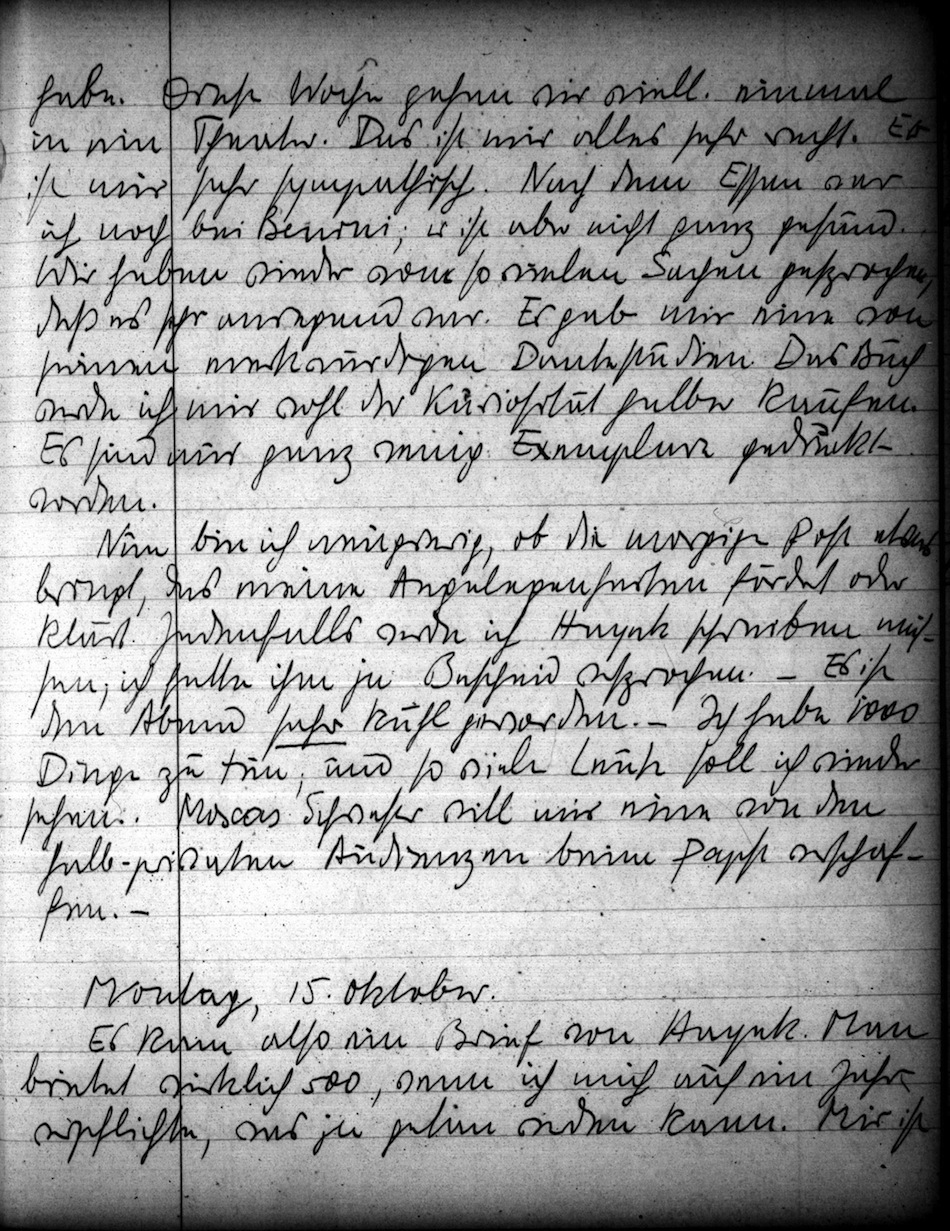 habe. Diese Woche gehen wir viell. einmal
in ein Theater. Das ist mir alles sehr recht. Er
ist mir sehr sympathisch. Nach dem Essen war
ich noch bei; er ist aber nicht ganz gesund.
Wir haben wieder von so vielen Sachen gesprochen,
daß es sehr anregend war. Er gab mir eine von
seinen merkwürdigen Dantestudien. Das Buch
werde ich mir wohl der Kuriosität halber kaufen.
Es sind nur ganz wenig Exemplare gedruckt
worden.
Nun bin ich neugierig, ob die morgige Post etwas
bringt, das meine Angelegenheiten fördet oder
klärt. Jedenfalls werde ich Haynk schreiben müs-
sen; ich hatte ihm ja Bescheid versprochen. – Es ist
den Abend sehr kühl geworden. – Ich habe 1000
Dinge zu tun, und so viele Leute soll ich wieder
sehen. Moscas Schwester will mir eine von den
halb-privaten Audienzen beim Papst verschaf-
fen. –
Montag, 15. Oktober.
Es kam also ein Brief von Haynk. Man
bietet wirklich 500, wenn ich mich auf ein Jahr
verpflichte, was ja getan werden kann. Mir ist